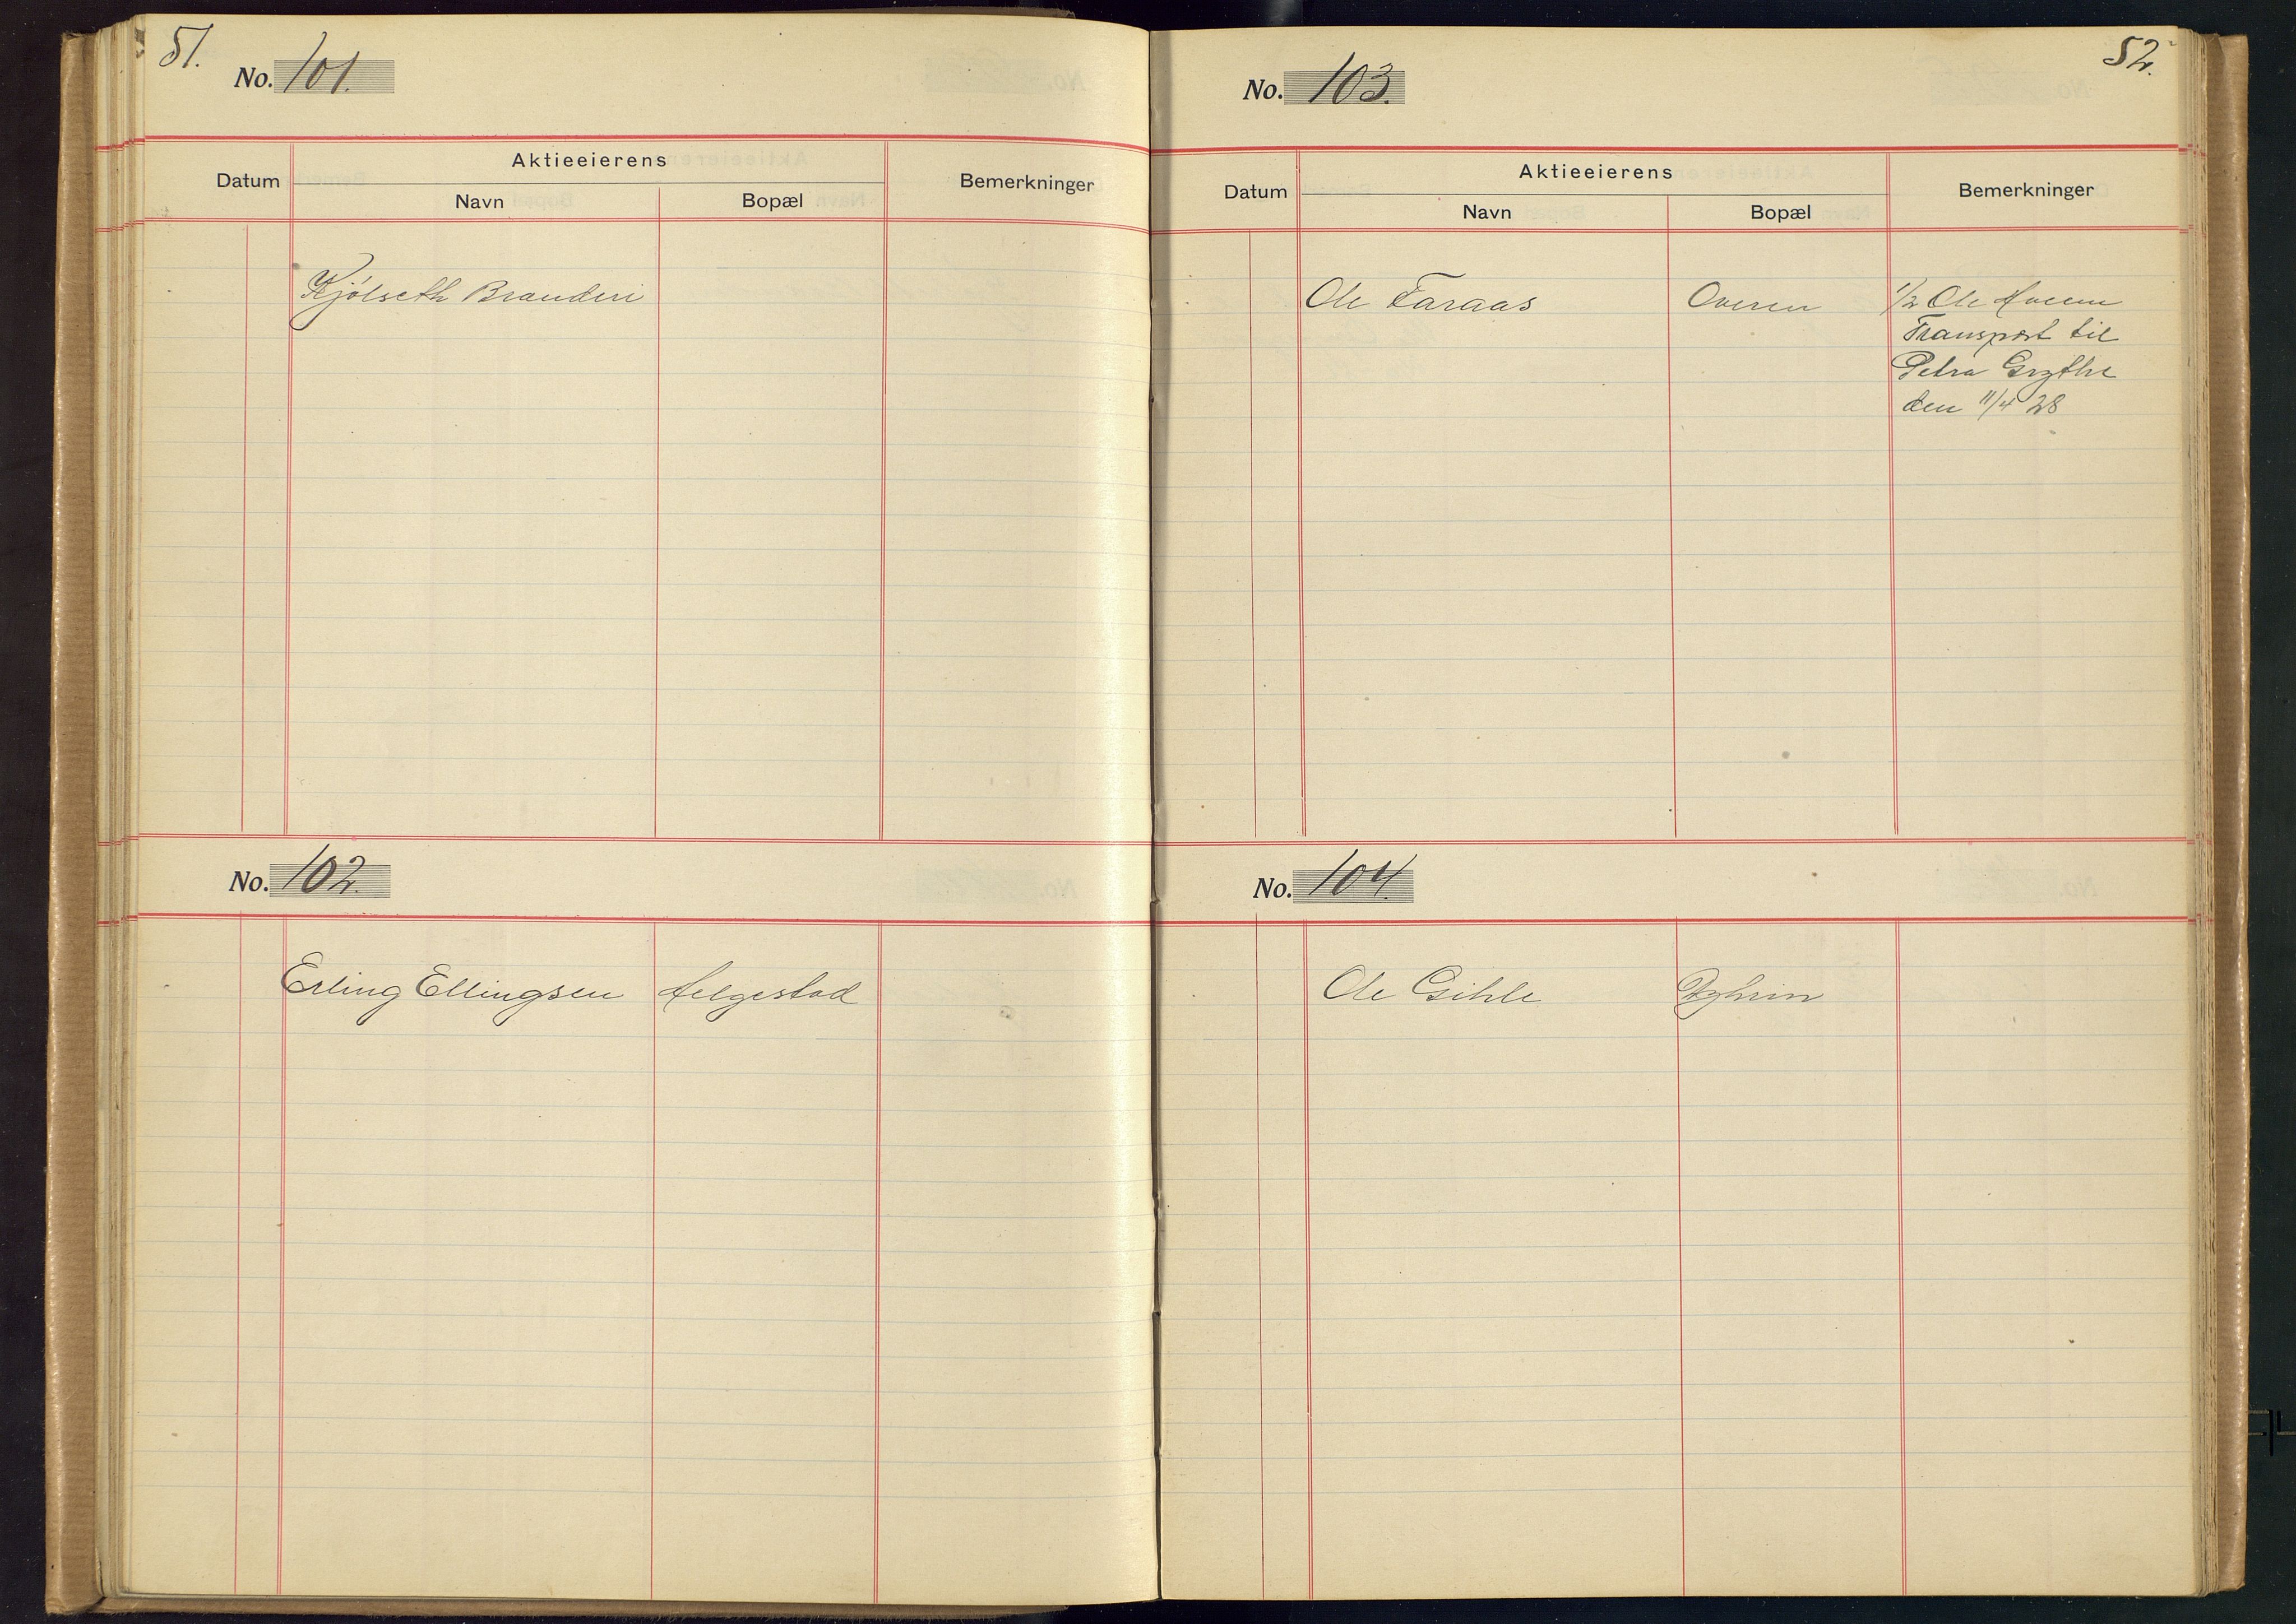 51.
No. 101.
Aktieeierens
Datum Navn Bopæl Bemerkninger
Kjölseth Bränderi
No. 102.
Erling Ellingsen Helgestad
52.
No. 103.
Aktieeierens
Datum Navn Bopæl Bemerkninger
Ole Faraas Overen 1/2 Ole
Transport til
Petra Grythe
den 11/4 28
No. 104.
Ole Gihle Dyhrin